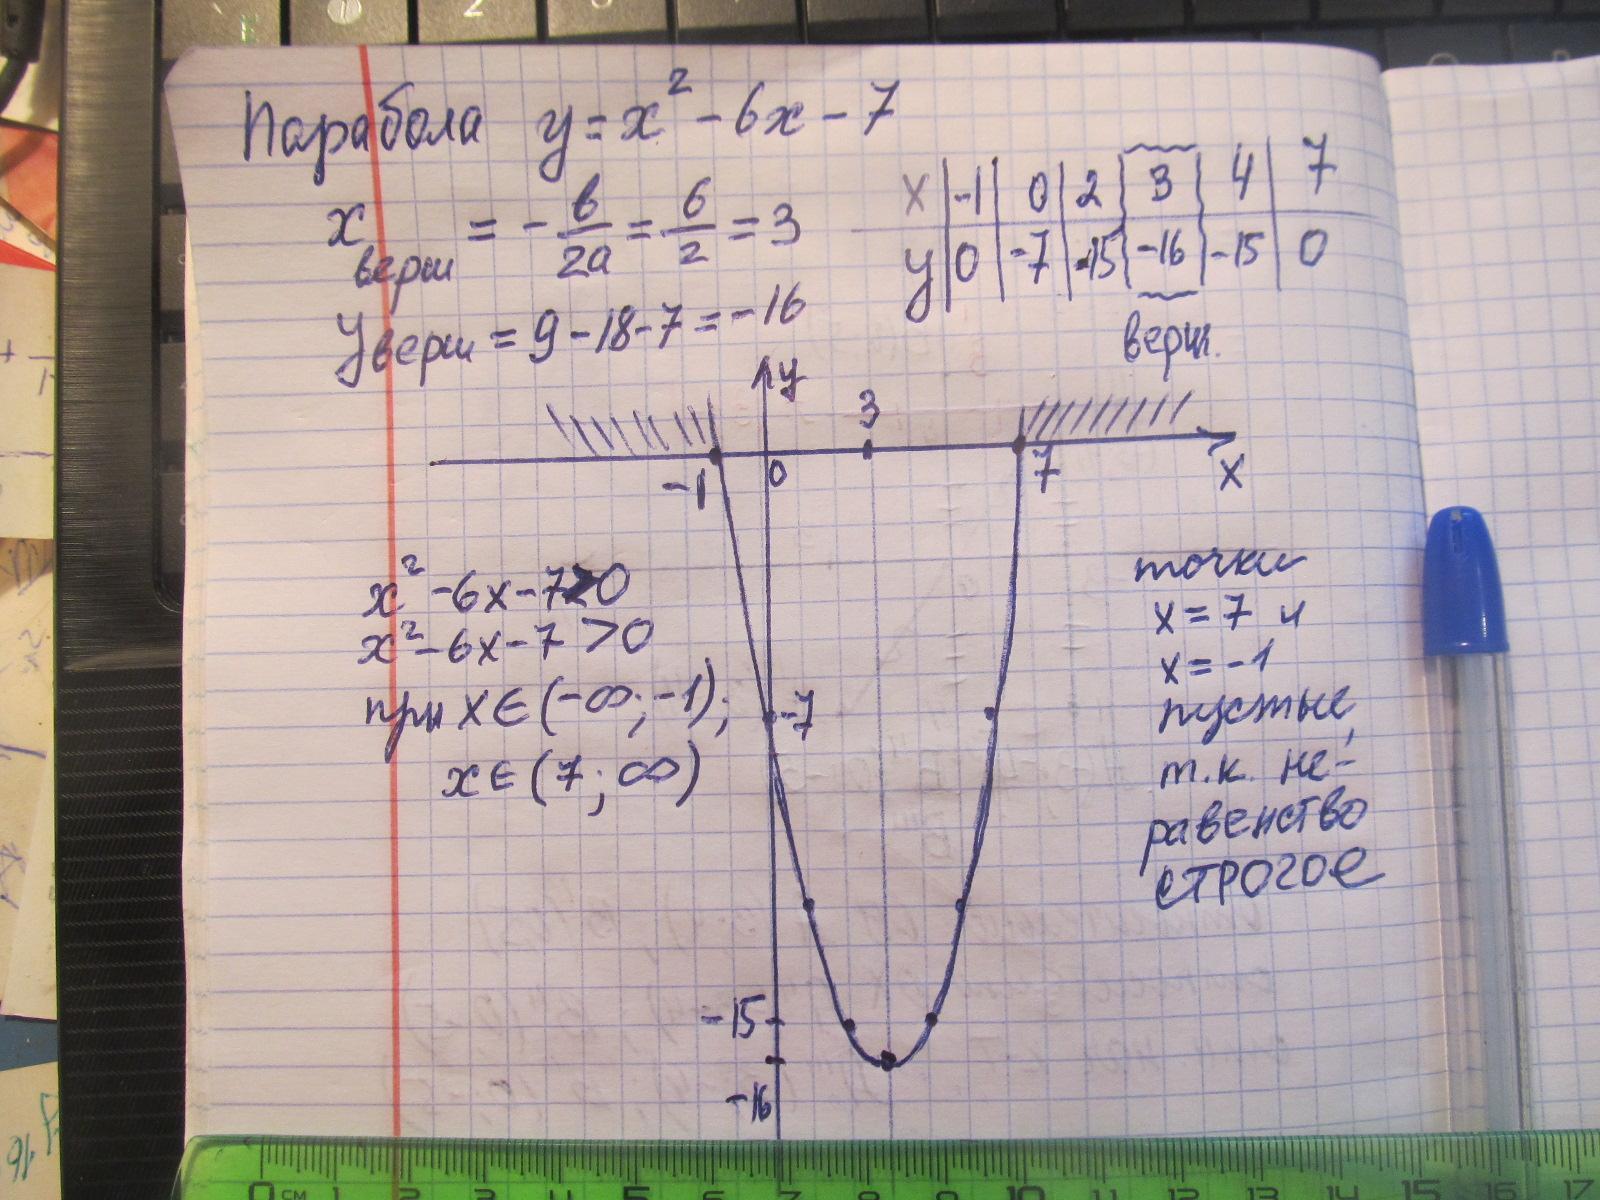 Парабола y = x² - 6x - 7
x верш = - b/2a = 6/2 = 3
y верш = 9 - 18 - 7 = -16
x | -1 | 0 | 2 | 3 | 4 | 7
y | 0 | -7 | -15 | -16 | -15 | 0
верш.
y
3
-1
0
7
x
x² - 6x - 7 > 0
x² - 6x - 7 > 0
при x ∈ (-∞; -1);
x ∈ (7; ∞)
-7
-15
-16
точки
x = 7 и
x = -1
пустые,
т.к. не-
равенство
строгое
0 см 1 2 3 4 5 6 7 8 9 10 11 12 13 14 15 16 17